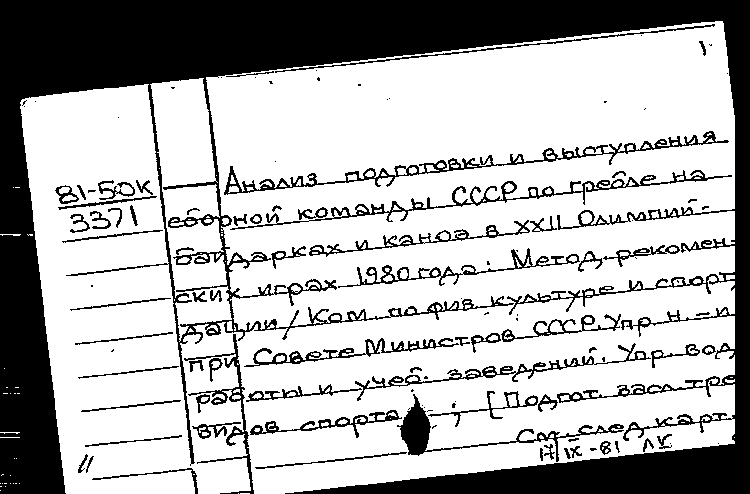 1
81-50К
3371
Анализ подготовки и выступления
сборной команды СССР по гребле на
байдарках и каноэ в XXII Олимпий-
ских играх 1980 года: Метод. рекомен-
дации / Ком. по физ. культуре и спорту
при Совете Министров СССР, Упр. н.-и.
работы и учеб. заведений. Упр. вод.
видов спорта ; [Подгот. засл. тре
См. след. карт.
17/IX-81
11